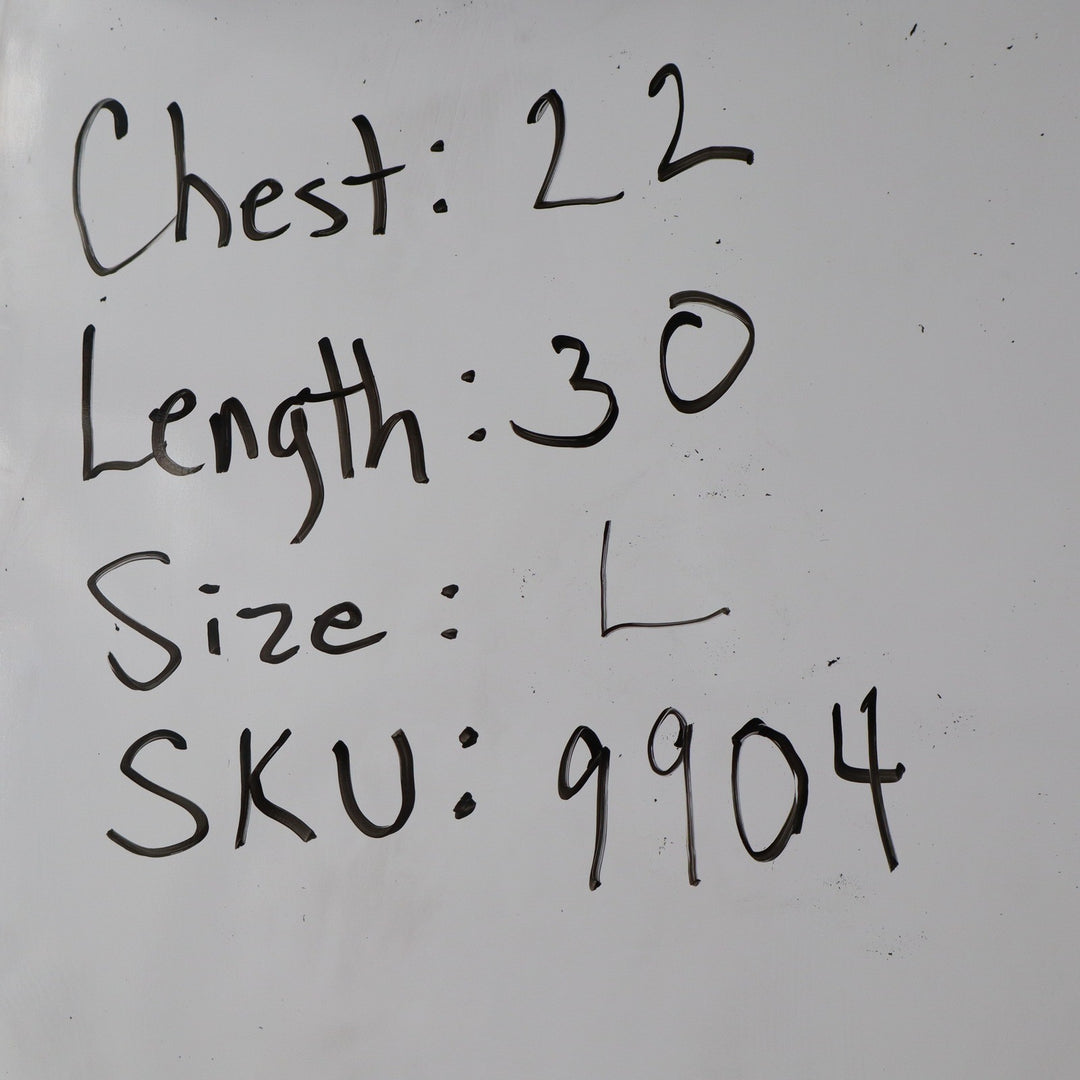 Chest: 22
Length: 30
Size: L
SKU: 9904